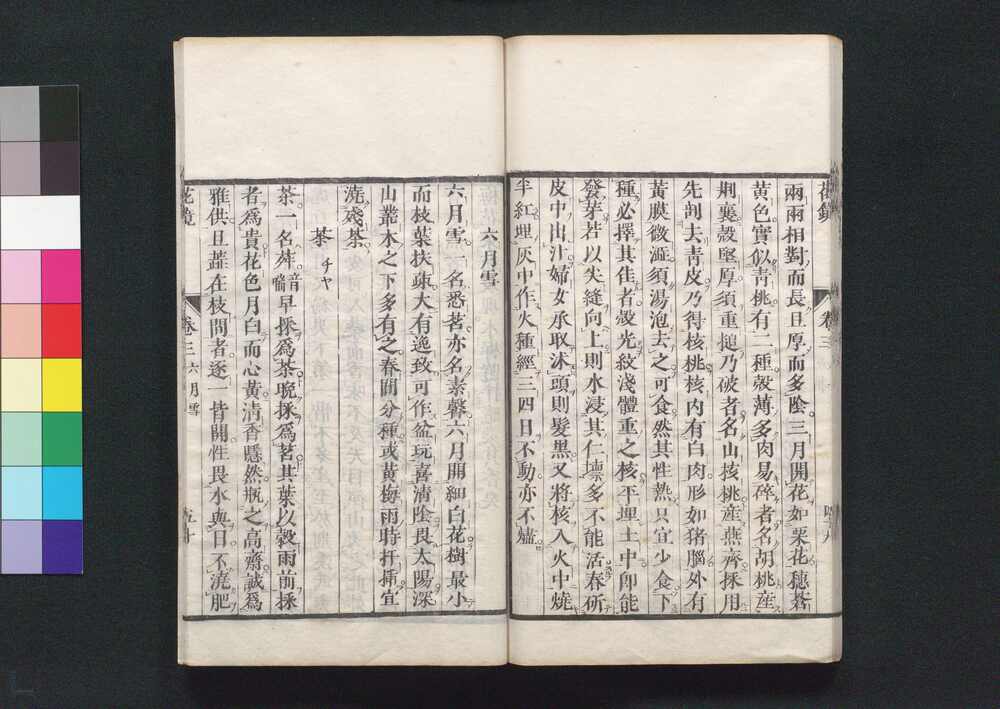 花鏡
卷三
兩兩相對而長且厚而多陰三月開花如栗花穗蒼
黃色實似青桃有二種殼薄多肉易碎者名胡桃産
荊襄殼堅厚須重搥乃破者名山核桃産燕齊採用
先剖去青皮乃得核桃核内有白肉形如猪腦外有
黃膜微澁須湯泡去之可食然其性熱只宜少食下
種必擇其佳者殼光紋淺體重之核平埋土中即能
發芽若以尖縫向上則水浸其仁壞多不能活春斫
皮中出汁婦女承取沭頭則髮黑又將核入火中燒
半紅埋灰中作火種經三四日不動亦不燼
六月雪
六月雪一名悉茗亦名素馨六月開細白花樹最小
而枝葉扶疎大有逸致可作盆玩喜清陰畏太陽深
山叢木之下多有之春間分種或黄梅雨時扦插宜
澆殘茶
茶 チヤ
茶一名荈音喘早採爲茶晚採爲茗其葉以穀雨前採
者爲貴花色月白而心黃清香隱然瓶之高齋誠爲
雅供且蕋在枝間者逐一皆開性畏水與日不澆肥
花鏡
卷三 六月雪
五十